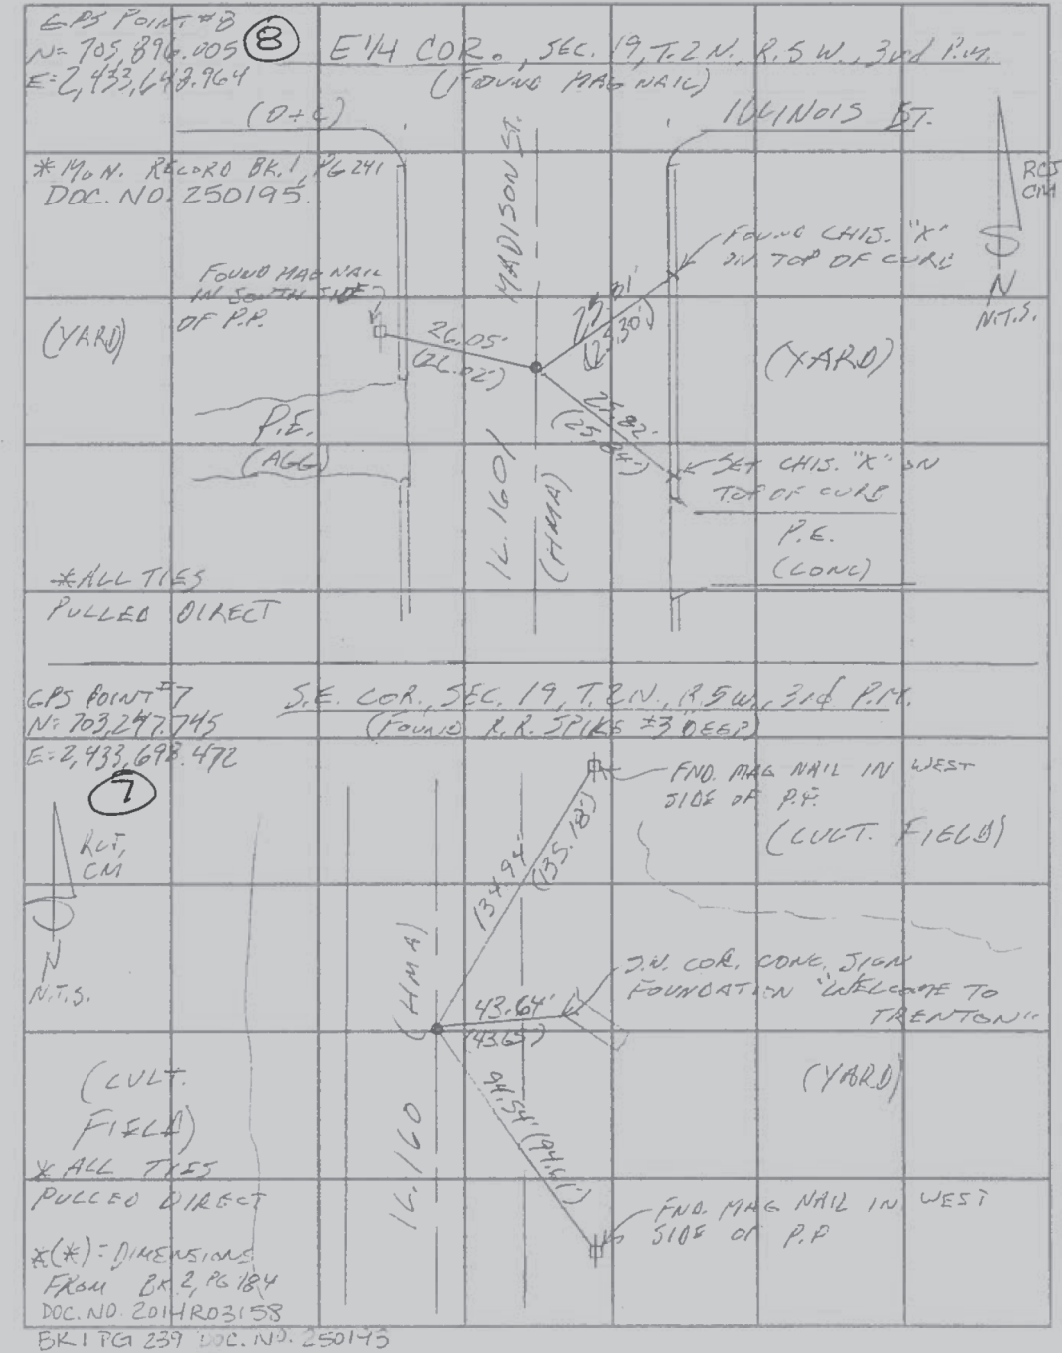 GPS POINT #8
N= 705,896.005
E=2,433,648.964
8
E 1/4 COR., SEC. 19, T.2 N., R.5 W., 3rd P.M.
(FOUND MAG NAIL)
ILLINOIS ST.
* MON. RECORD BK. 1, PG 241
DOC. NO. 250195
MADISON ST.
RCJ
CM
FOUND CHIS. "X"
ON TOP OF CURB
FOUND MAG NAIL
IN SOUTH SIDE
OF P.P.
N
N.T.S.
(YARD)
26.05'
(26.02')
(25.30')
(YARD)
25.82'
(25.84')
P.E.
(AGG)
IL. 160
(HMA)
SET CHIS. "X" ON
TOP OF CURB
P.E.
(CONC)
*ALL TIES
PULLED DIRECT
GPS POINT #7
N: 703,247.745
E=2,433,698.472
7
S.E. COR., SEC. 19, T.2N., R.5W., 3rd P.M.
(FOUND R.R. SPIKE ±3" DEEP)
FND. MAG NAIL IN WEST
SIDE OF P.P.
(CULT. FIELD)
CM
134.94'
(135.18')
N
N.T.S.
(HMA)
S.W. COR. CONC. SIGN
FOUNDATION "WELCOME TO
TRENTON"
43.64'
(43.65')
(YARD)
(CULT.
FIELD)
94.54' (94.61')
IL. 160
* ALL TIES
PULLED DIRECT
FND. MAG NAIL IN WEST
SIDE OF P.P
*(*) = DIMENSIONS
FROM BK 2, PG 184
DOC. NO. 2014R03158
BK 1 PG 239 DOC. NO. 250193